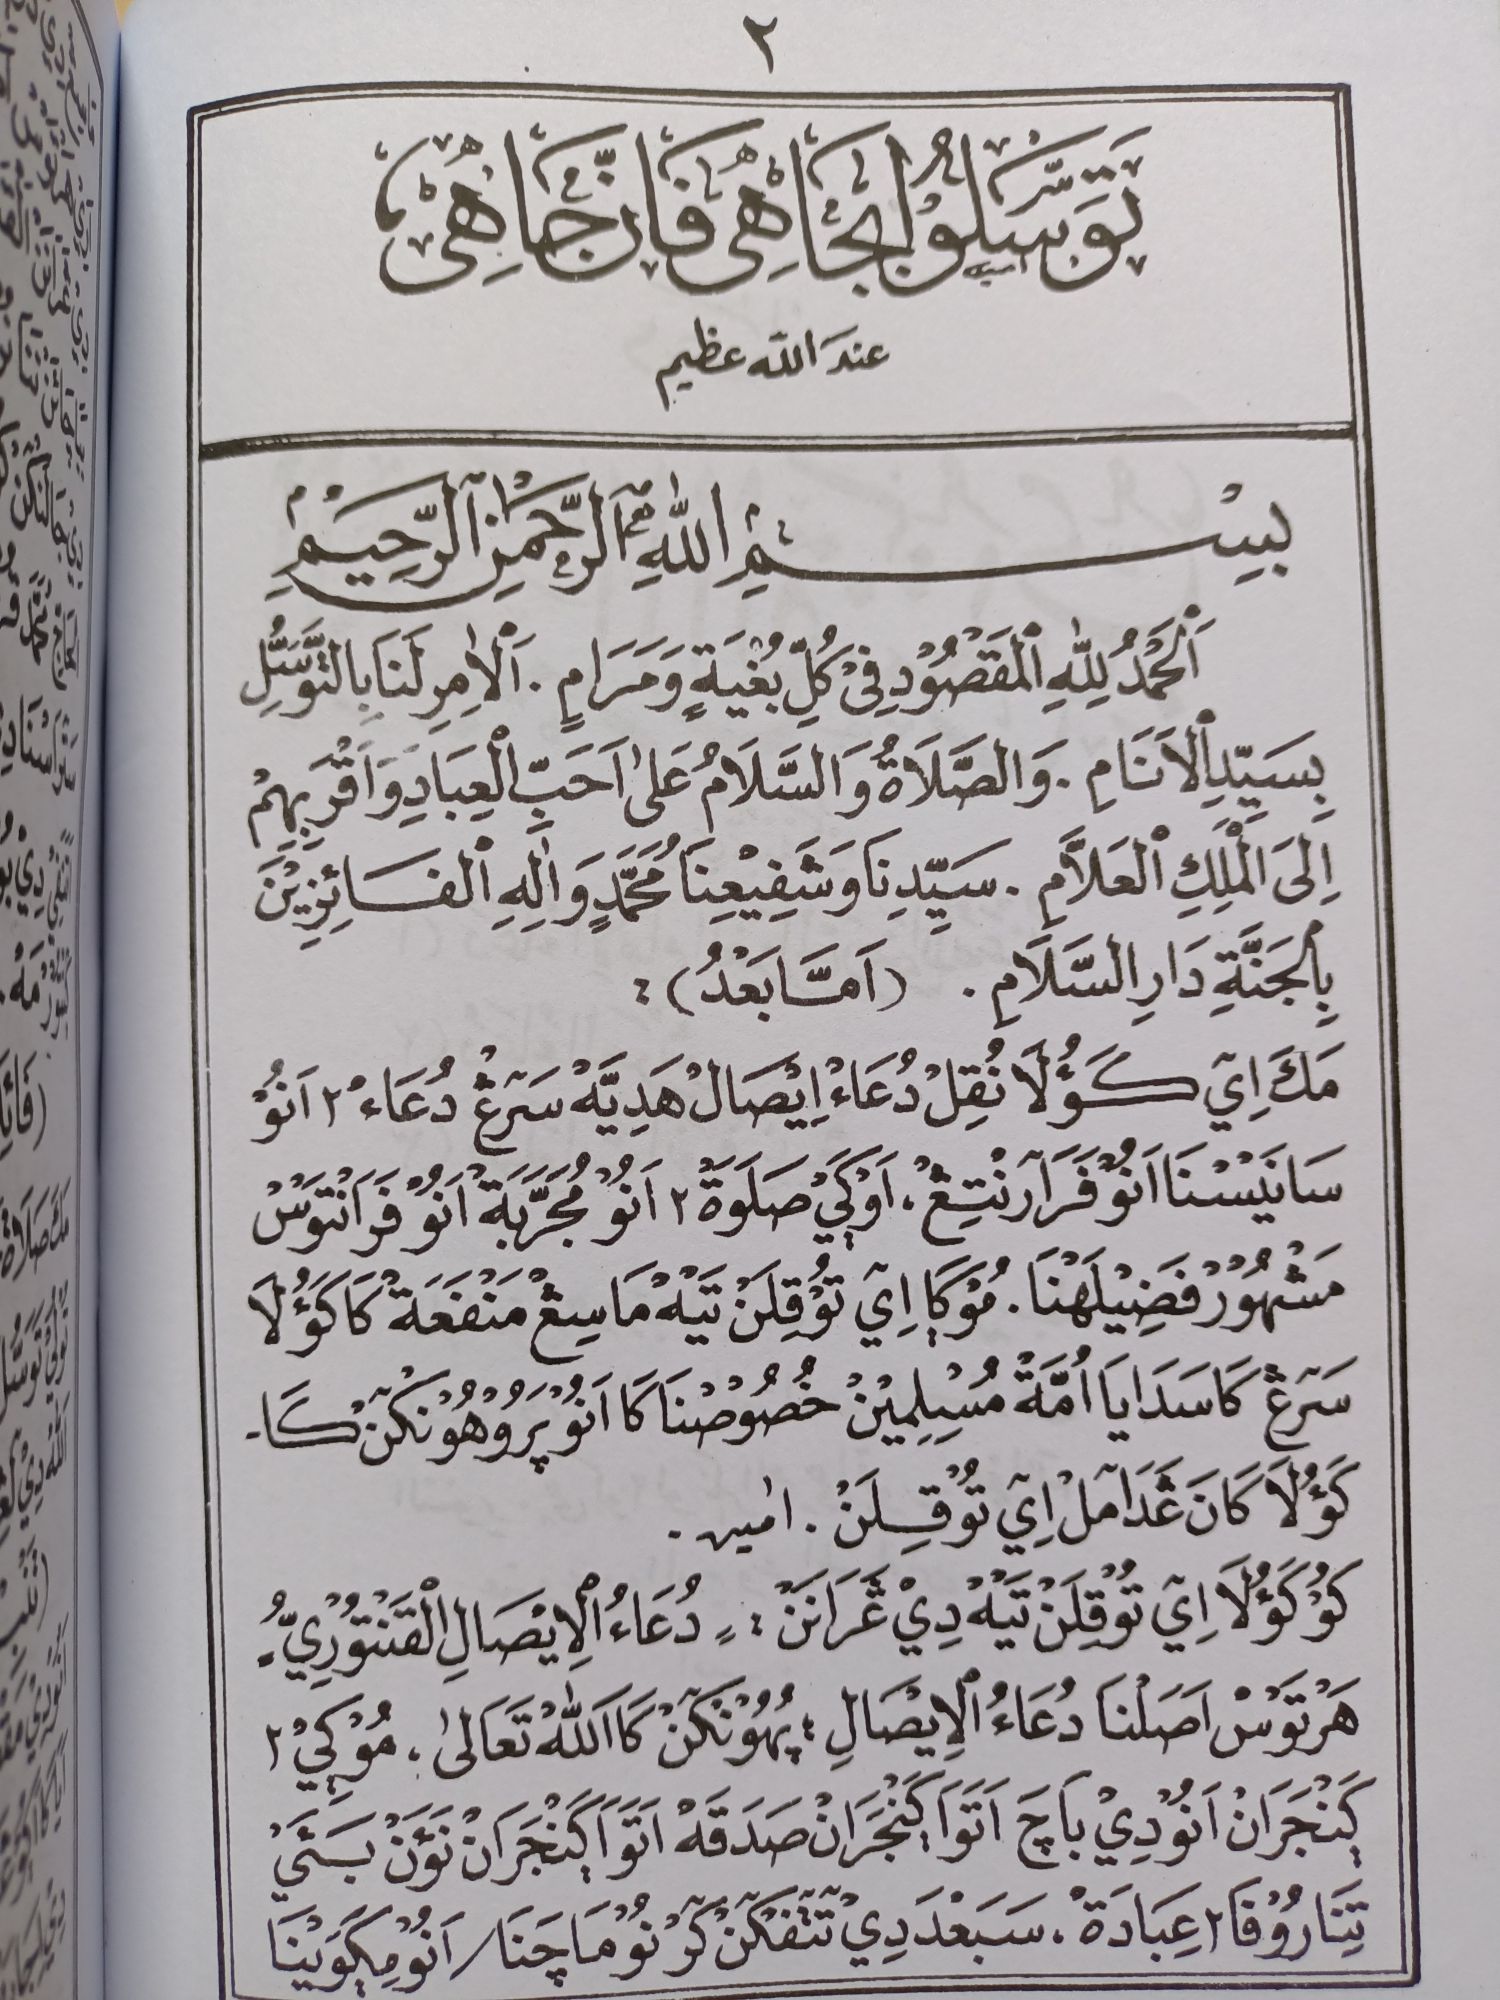 ٢
تَوَسَّلُوْا بِجَاهِيْ فَاِنَّ جَاهِيْ
عندَ الله عظيم
بِسْمِ اللهِ الرَّحْمٰنِ الرَّحِيْمِ
اَلْحَمْدُ لِلّٰهِ الْمَقْصُوْدِ فِيْ كُلِّ بُغْيَةٍ وَمَرَامٍ . اَلْاٰمِرِ لَنَا بِالتَّوَسُّلِ
بِسَيِّدِ الْاَنَامِ . وَالصَّلَاةُ وَالسَّلَامُ عَلٰى اَحَبِّ الْعِبَادِ وَاَقْرَبِهِمْ
اِلَى الْمَلِكِ الْعَلَّامِ . سَيِّدِنَا وَشَفِيْعِنَا مُحَمَّدٍ وَاٰلِهِ الْفَائِزِيْنَ
بِالْجَنَّةِ دَارِ السَّلَامِ . (اَمَّا بَعْدُ) :
مَكَ اِيٓ كَؤُلَا نُقِلْ دُعَاءْ اِيْصَالْ هَدِيَّةْ سَرَڠْ دُعَاءْ ٢ اَنُوْ
سَانَيْسْنَا اَنُوْ فَرَآرنْتِڠْ ، اَوْكَيْ صَلَوَةْ ٢ اَنُوْ مُجَرَّبَةْ اَنُوْ فَرَانْتَوْسْ
مَشْهُوْرْ فَضِيْلَهْنَا . مُوْݢَا اِيٓ تُوْقِلَنْ تَيَهْ مَاسِڠْ مَنْفَعَةْ كَا كَؤُلَا
سَرَڠْ كَا سَدَايَا اُمَّةْ مُسْلِمِيْنْ خُصُوْصْنَا كَا اَنُوْ پَرُوْهُوْنْكَنْ كَا-
كَؤُلَا كَانَ ڠَدَآمَلْ اِيٓ تُوْقِلَنْ . اٰمين .
كُوْ كَؤُلَا اِيٓ تُوْقِلَنْ تَيَهْ دِيْ ڠَرَانَنْ : دُعَاءُ الْاِيْصَالِ الْقَنْتُوْرِيُّ.
هَرْتَوْسْ اَصَلْنَا دُعَاءُ الْاِيْصَالِ ؛ پُهُوْنْكَنْ كَا اَللهْ تَعَالٰى ، مُوْݢِيْ ٢
ݢَنْجَرَانْ اَنُوْ دِيْ بَاچَ اَتَوَا ݢَنْجَرَانْ صَدَقَهْ اَتَوَا ݢَنْجَرَانْ نَوَنْ بَسَئَيْ
تِنَا رُوْفَا ٢ عِبَادَةْ ، سَبَعْدَ دِيْ تَتَفْكَنْ كَرْ نُوْ مَاچَنَا / اَنُوْ مِݢَوَيْنَا